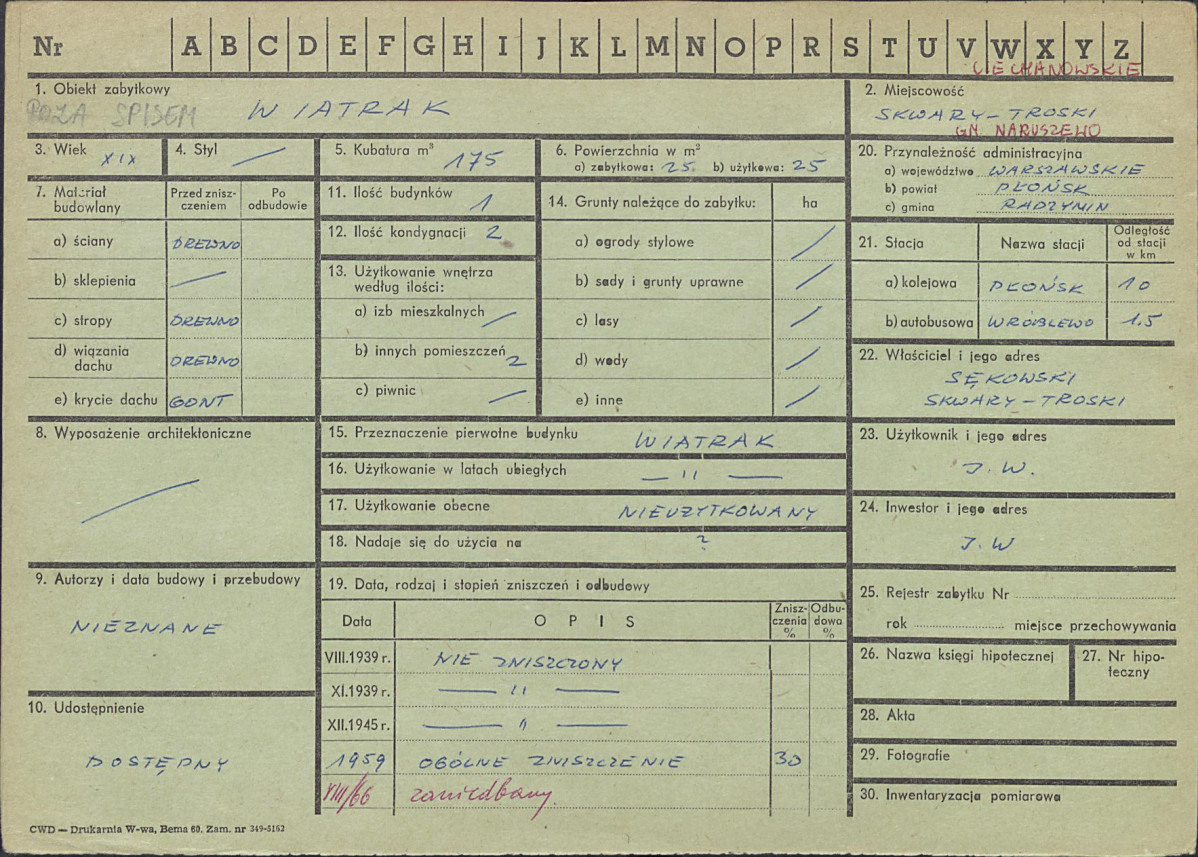 Nr A B C D E F G H I J K L M N O P R S T U V W X Y Z
CIECHANOWSKIE
1. Obiekt zabytkowy
POZA SPISEM WIATRAK
2. Miejscowość
SKWARY-TROSKI
GM. NARUSZEWO
3. Wiek XIX
4. Styl —
5. Kubatura m³ 175
6. Powierzchnia w m²
a) zabytkowa: 25 b) użytkowa: 25
7. Materiał budowlany
Przed zniszczeniem
Po odbudowie
a) ściany DREWNO
b) sklepienia —
c) stropy DREWNO
d) wiązania dachu DREWNO
e) krycie dachu GONT
8. Wyposażenie architektoniczne
—
9. Autorzy i data budowy i przebudowy
NIEZNANE
10. Udostępnienie
DOSTĘPNY
11. Ilość budynków 1
12. Ilość kondygnacji 2
13. Użytkowanie wnętrza
według ilości:
a) izb mieszkalnych —
b) innych pomieszczeń 2
c) piwnic —
14. Grunty należące do zabytku: ha
a) ogrody stylowe /
b) sady i grunty uprawne /
c) lasy /
d) wody /
e) inne /
15. Przeznaczenie pierwotne budynku WIATRAK
16. Użytkowanie w latach ubiegłych — " —
17. Użytkowanie obecne NIEUŻYTKOWANY
18. Nadaje się do użycia na ?
19. Data, rodzaj i stopień zniszczeń i odbudowy
Data OPIS Zniszczenia % Odbudowa %
VIII.1939 r. NIE ZNISZCZONY
XI.1939 r. — " —
XII.1945 r. — " —
1959 OGÓLNE ZNISZCZENIE 30
VIII/66 zaniedbany.
20. Przynależność administracyjna
a) województwo WARSZAWSKIE
b) powiat PŁOŃSK
c) gmina RADZYMIN
21. Stacja Nazwa stacji Odległość od stacji w km
a) kolejowa PŁOŃSK 10
b) autobusowa WRÓBLEWO 1.5
22. Właściciel i jego adres
SĘKOWSKI
SKWARY-TROSKI
23. Użytkownik i jego adres
J.W.
24. Inwestor i jego adres
J.W
25. Rejestr zabytku Nr
rok miejsce przechowywania
26. Nazwa księgi hipotecznej
27. Nr hipoteczny
28. Akta
29. Fotografie
30. Inwentaryzacja pomiarowa
CWD — Drukarnia W-wa, Bema 60. Zam. nr 349-5162